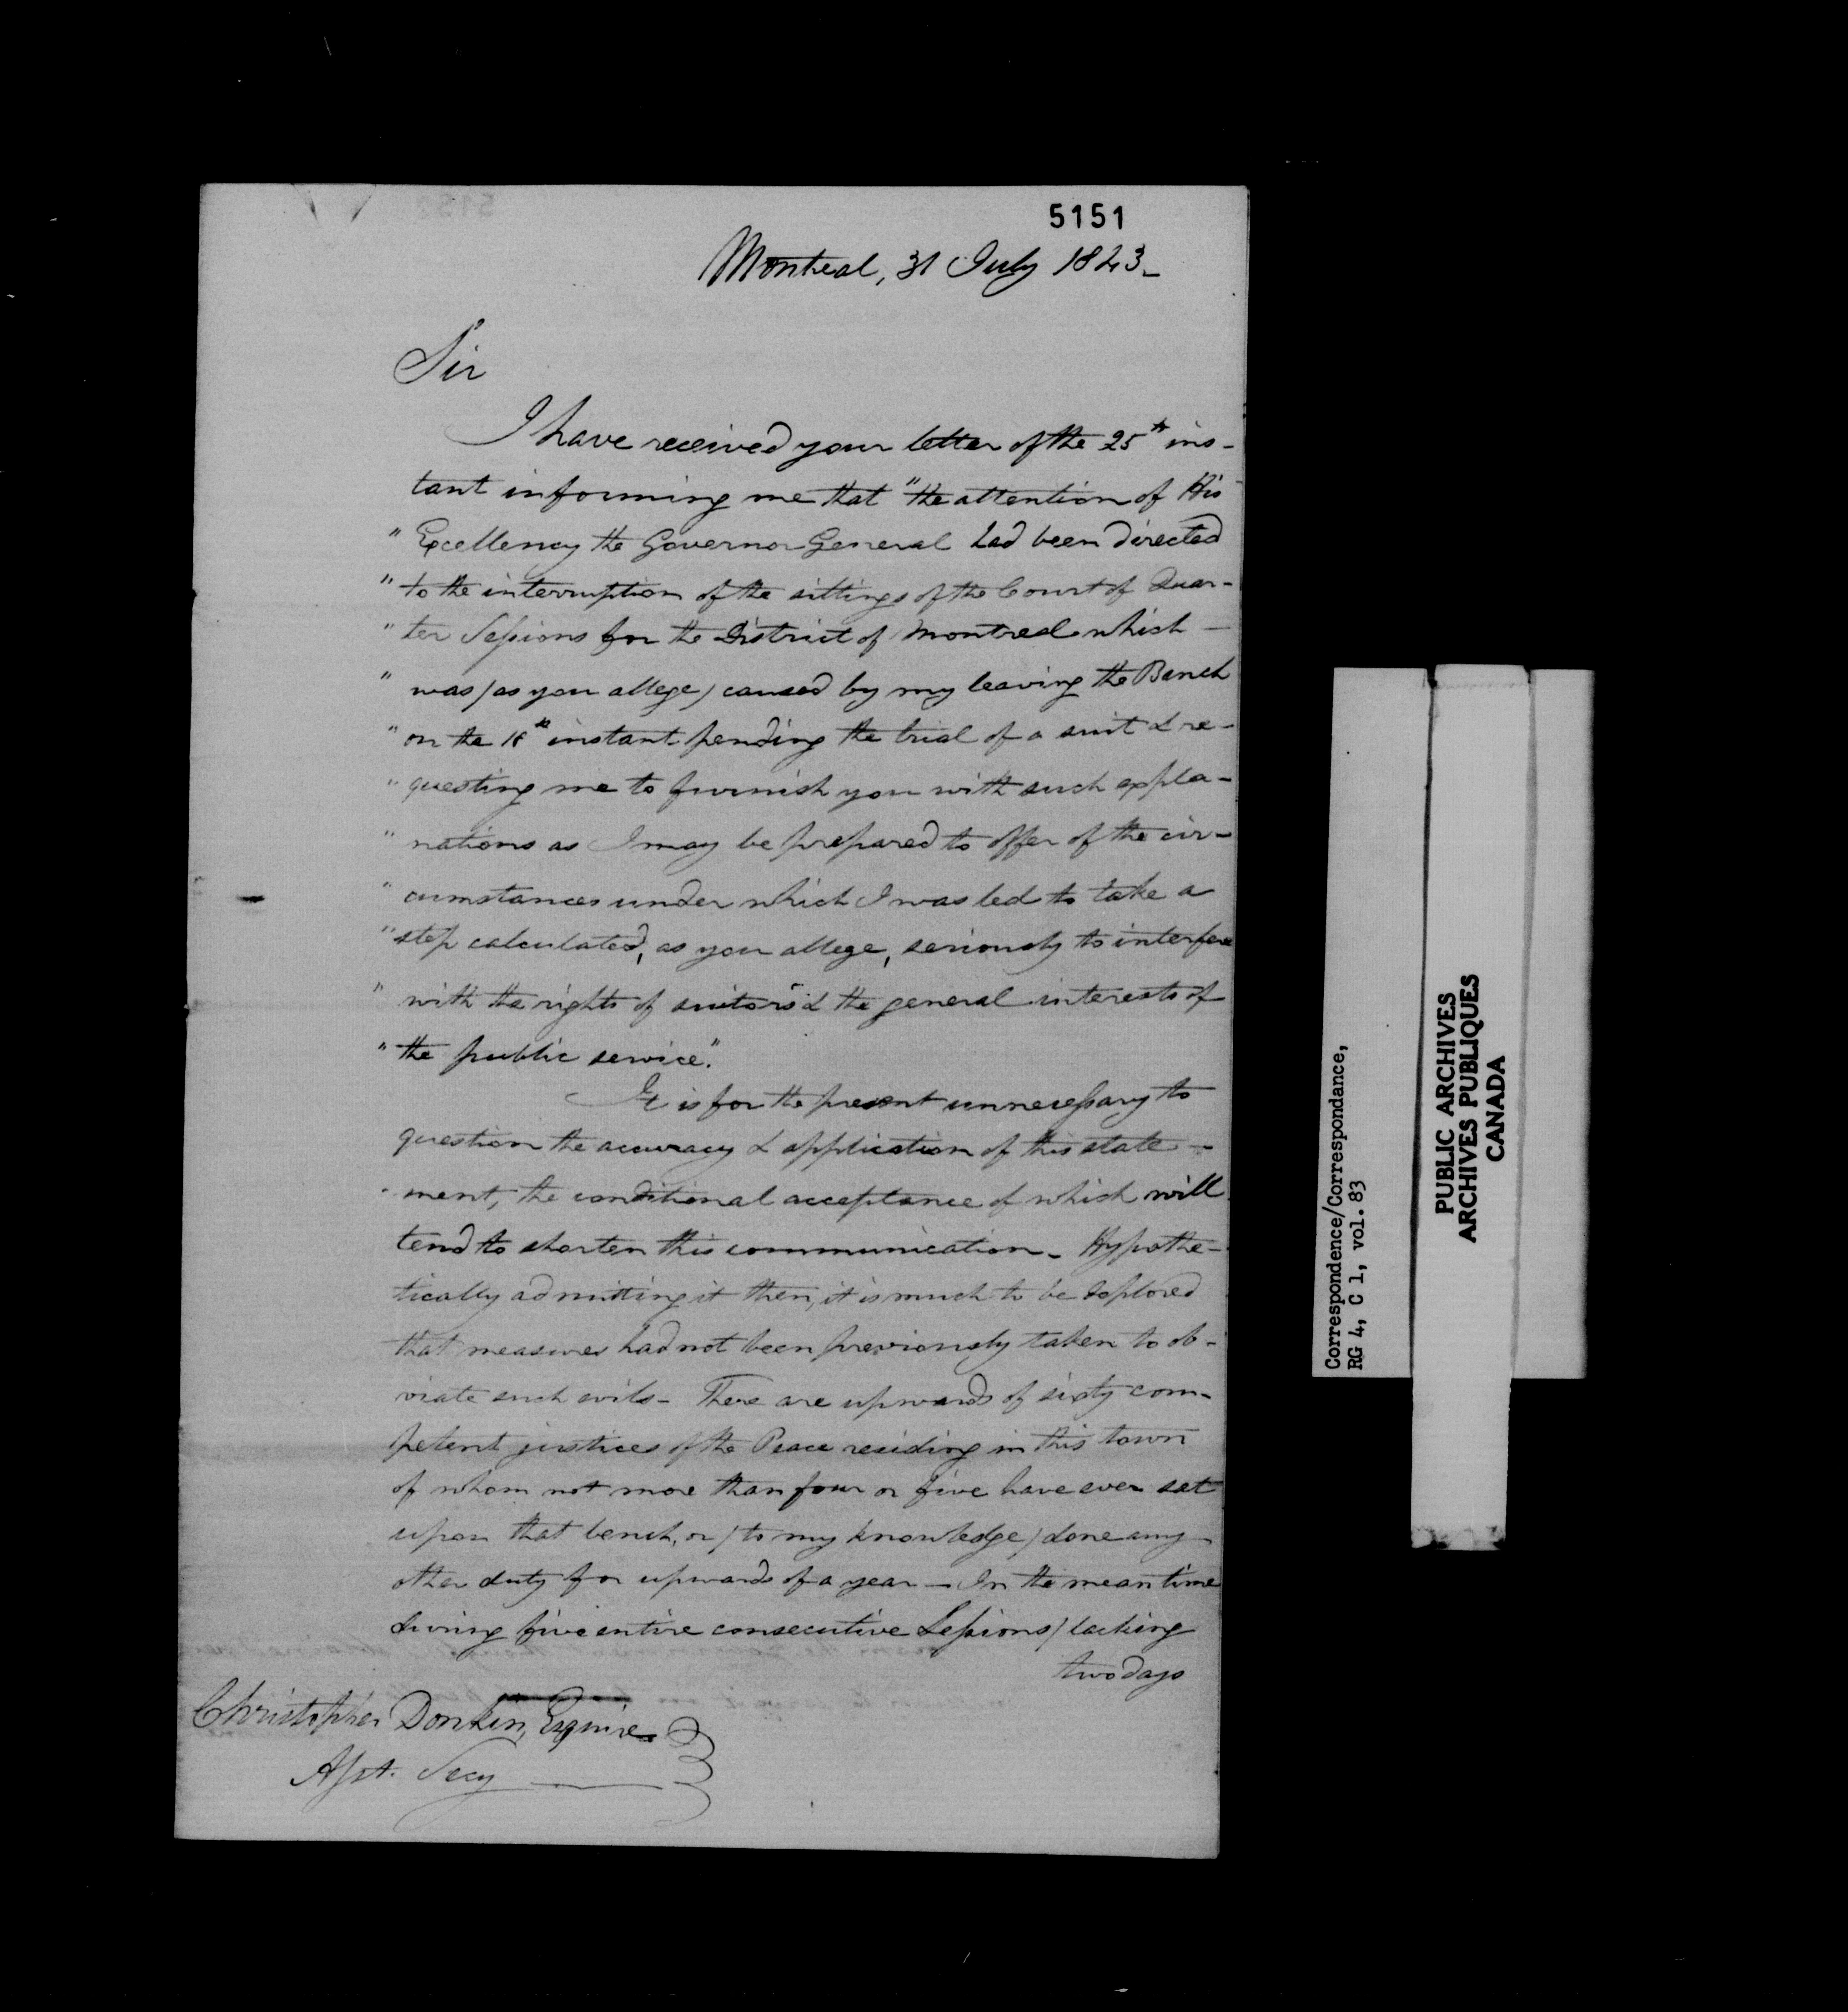 5151
Montreal, 31 July 1843_
Sir
I have received your letter of the 25th ins-
tant informing me that "the attention of His
" Excellency the Governor General had been directed
" to the interruption of the sittings of the Court of Quar-
" ter Sessions for the District of Montreal which —
" was / as you allege / caused by my leaving the Bench
" on the 18th instant pending the trial of a suit & re-
" questing me to furnish you with such expla-
" nations as I may be prepared to offer of the cir-
" cumstances under which I was led to take a
" step calculated, as you allege, seriously to interfere
" with the rights of suitors & the general interests of
" the public service".
It is for the present unnecessary to
question the accuracy & application of this state-
ment, the conditional acceptance of which will
tend to shorten this communication_ Hypothe-
tically admitting it then, it is much to be deplored
that measures had not been previously taken to ob-
viate such evils_ There are upwards of sixty com-
petent justices of the Peace residing in this town
of whom not more than four or five have ever sat
upon that bench, or / to my knowledge / done any
other duty for upwards of a year — In the mean time
during five entire consecutive Sessions / lacking
two days
Christopher Dunkin, Esquire
Asst. Secy
Correspondence/Correspondance,
RG 4, C 1, vol. 83
PUBLIC ARCHIVES
ARCHIVES PUBLIQUES
CANADA